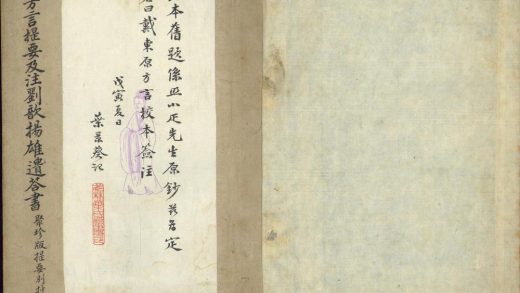 本舊題係小疋先生原鈔茲為定
曰戴東原方言校本簽注
戊寅夏日
葉景葵記
方言提要及注劉歆揚雄遺荅書 聚珍版提要別